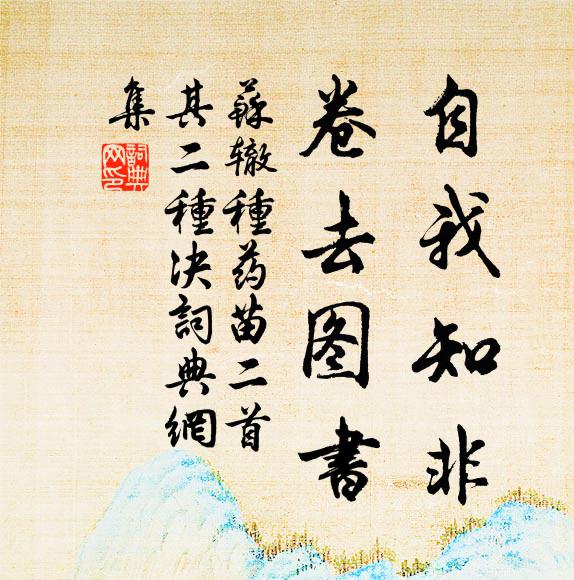 自我知非
卷去图書
蘇辙種药苗二首
其二種决詞典網
集
詞典网印